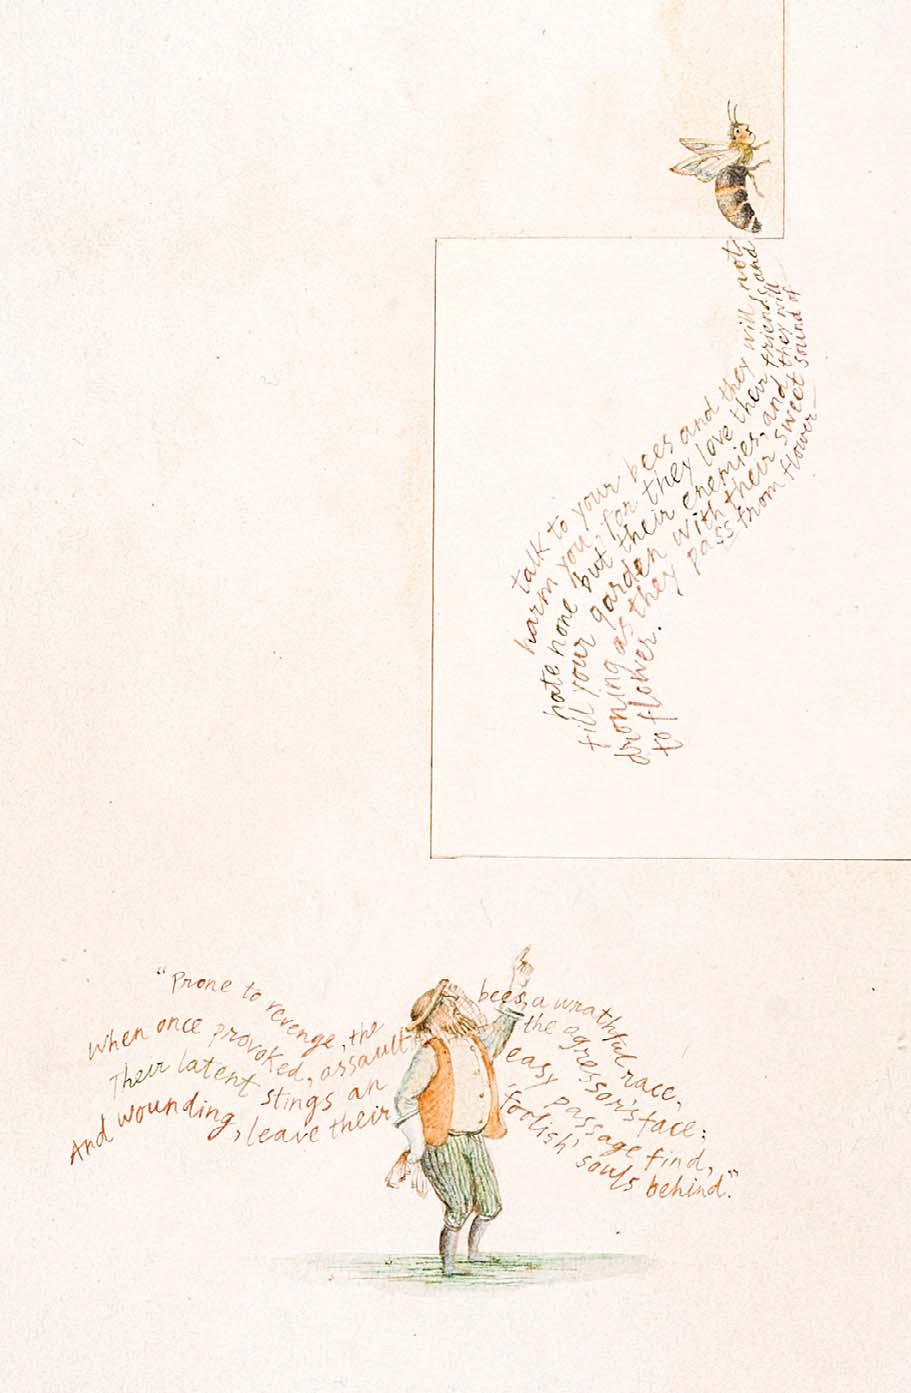 talk to your bees and they will not
harm you, for they love their friends and
hate none but their enemies, and they will
fill your garden with their sweet sound of
droning as they pass from flower
to flower.
"Prone to revenge, the bees, a wrathful race,
When once provoked, assault the agressor's face;
Their latent stings an easy passage find,
And wounding, leave their 'foolish' souls behind."